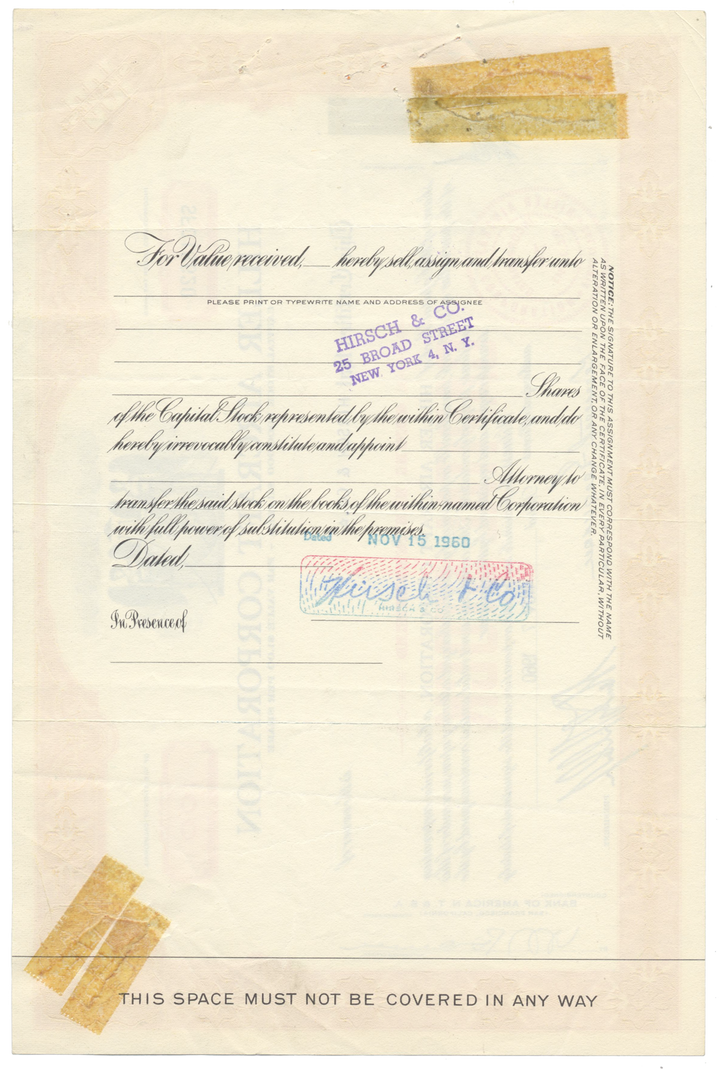 For Value received, ___ hereby sell, assign, and transfer unto
PLEASE PRINT OR TYPEWRITE NAME AND ADDRESS OF ASSIGNEE
HIRSCH & CO.
25 BROAD STREET
NEW YORK 4, N. Y.
Shares
of the Capital Stock represented by the within Certificate, and do
hereby irrevocably constitute and appoint
Attorney to
transfer the said stock on the books of the within-named Corporation
with full power of substitution in the premises.
Dated NOV 15 1960
Dated,
Hirsch & Co
HIRSCH & CO.
In Presence of
NOTICE: THE SIGNATURE TO THIS ASSIGNMENT MUST CORRESPOND WITH THE NAME
AS WRITTEN UPON THE FACE OF THE CERTIFICATE, IN EVERY PARTICULAR, WITHOUT
ALTERATION OR ENLARGEMENT, OR ANY CHANGE WHATEVER.
CORPORATION
BANK OF AMERICA N. T. & S. A.
THIS SPACE MUST NOT BE COVERED IN ANY WAY